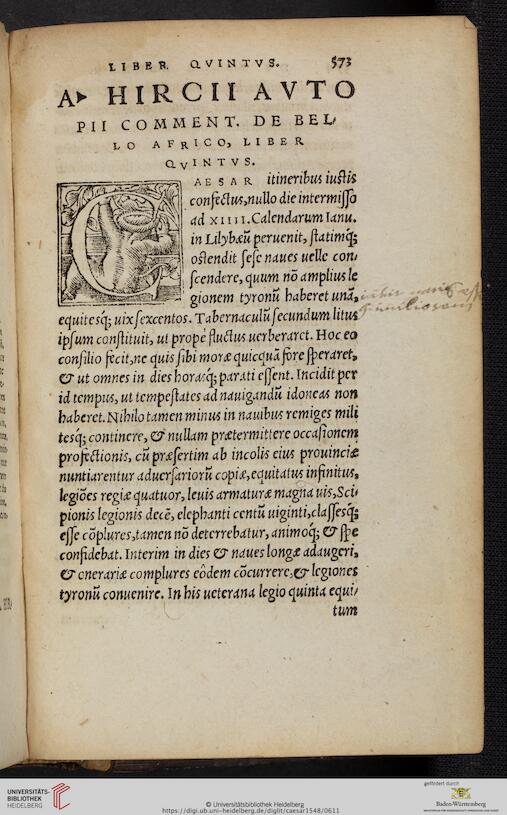 LIBER QVINTVS. 573
A▸ HIRCII AVTO
PII COMMENT. DE BEL/
LO AFRICO, LIBER
QVINTVS.
CAESAR itineribus iustis
confectus, nullo die intermisso
ad XIIII. Calendarum Ianu.
in Lilybæū peruenit, statimq́;
ostendit sese naues uelle con/
scendere, quum nō amplius le
gionem tyronū haberet unā,
equitesq́; uix sexcentos. Tabernaculū secundum litus
ipsum constituit, ut prope fluctus uerberaret. Hoc eo
consilio fecit, ne quis sibi moræ quicquā fore speraret,
& ut omnes in dies horasq́; parati essent. Incidit per
id tempus, ut tempestates ad nauigandū idoneas non
haberet. Nihilo tamen minus in nauibus remiges mili
tesq́; continere, & nullam prætermittere occasionem
profectionis, cū præsertim ab incolis eius prouinciæ
nuntiarentur aduersariorū copiæ, equitatus infinitus,
legiões regiæ quatuor, leuis armaturæ magna uis, Sci/
pionis legionis decē, elephanti centū uiginti, classesq́;
esse cōplures, tamen nō deterrebatur, animoq́; & spe
confidebat. Interim in dies & naues longæ adaugeri,
& onerariæ complures eôdem cōcurrere, & legiones
tyronū conuenire. In his ueterana legio quinta equi/
tum
UNIVERSITÄTS-
BIBLIOTHEK
HEIDELBERG
© Universitätsbibliothek Heidelberg
https://digi.ub.uni-heidelberg.de/diglit/caesar1548/0611
gefördert durch
Baden-Württemberg